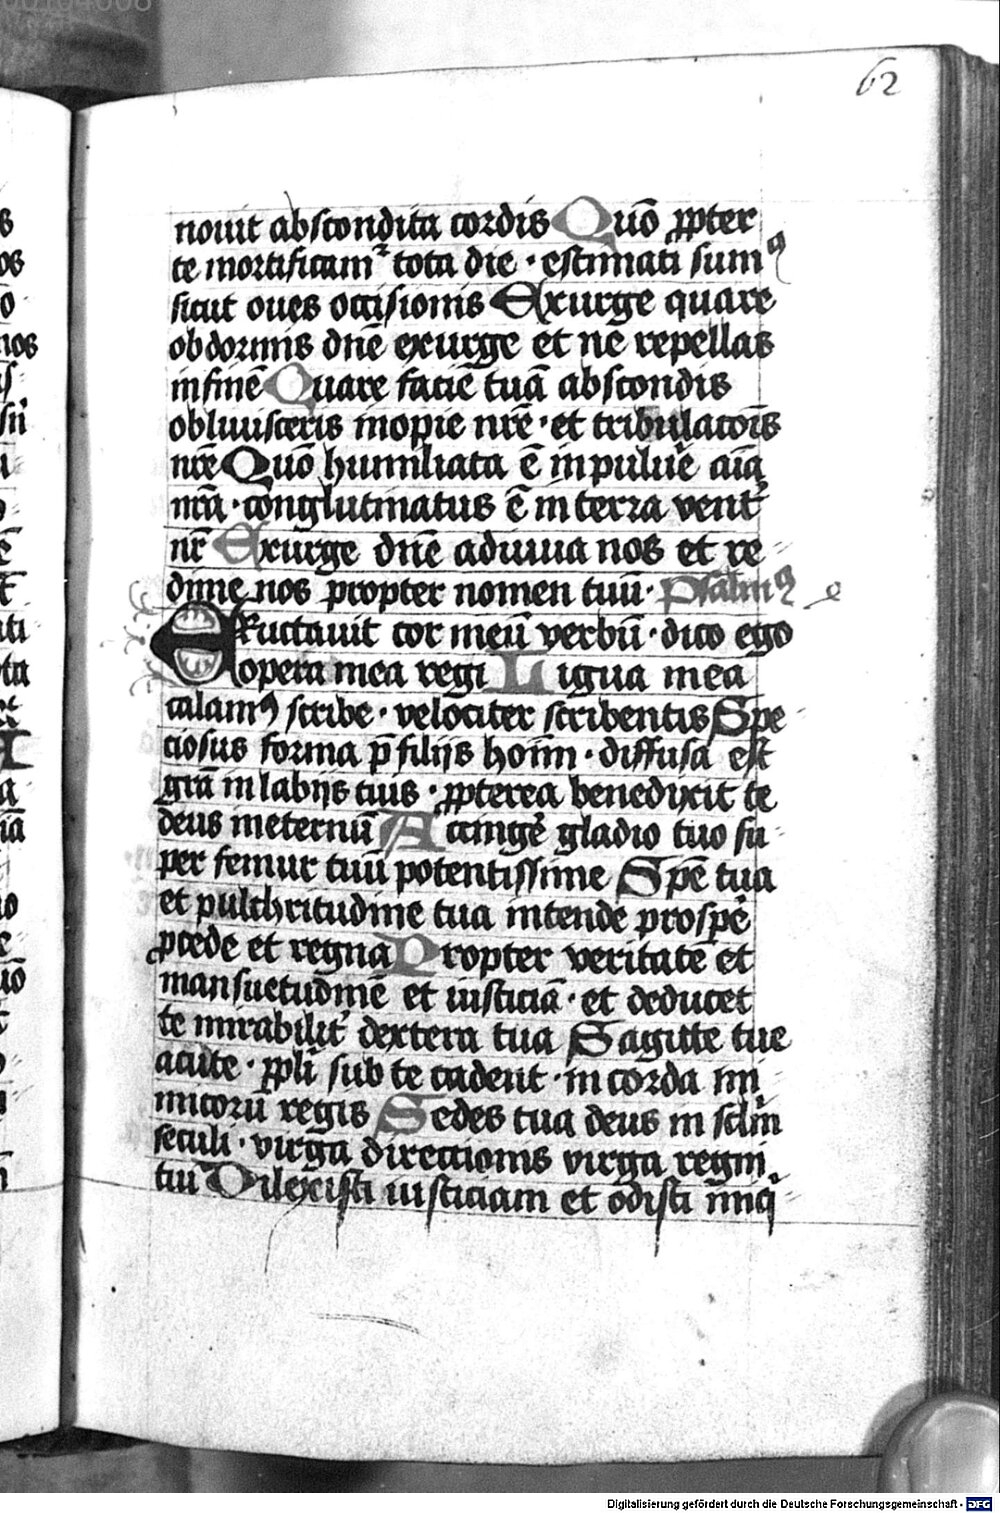 62
nouit abscondita cordis Quō ꝓpter
te mortificamꝛ tota die · estimati sumꝰ
sicut oues occisionis Exurge quare
obdormis dn̄e exurge et nē repellas
in finē Quare faciē tuā abscondis
obliuisceris inopie nr̄e · et tribulacōis
nr̄e Quō humiliata ē in puluē aīa
nr̄a · conglutinatus ē in terra vent᷑
nr̄ Exurge dn̄e adiuua nos et re
dime nos propter nomen tuū · Psalmꝰ
Eructauit cor meū verbū · dico ego
opera mea regi Ligua mea
calamꝰ scribe · velociter scribentis Spe
ciosus forma p̄ filijs hoīm · diffusa est
grā in labijs tuis · ꝓpterea benedixit te
deus in eternū Accingē gladio tuo su
per femur tuū potentissime Spē tua
et pulchritudine tua intende prospē
ꝓcede et regna Propter veritatē et
mansuetudinē et iusticiā · et deducet
te mirabilit᷑ dextera tua Sagitte tue
acute · ppl̄i sub te cadent · in corda ini
micorū regis Sedes tua deus in sclm̄
seculi · virga directionis virga regni
tui Dilexisti iusticiam et odisti īniq̄
Digitalisierung gefördert durch die Deutsche Forschungsgemeinschaft - DFG